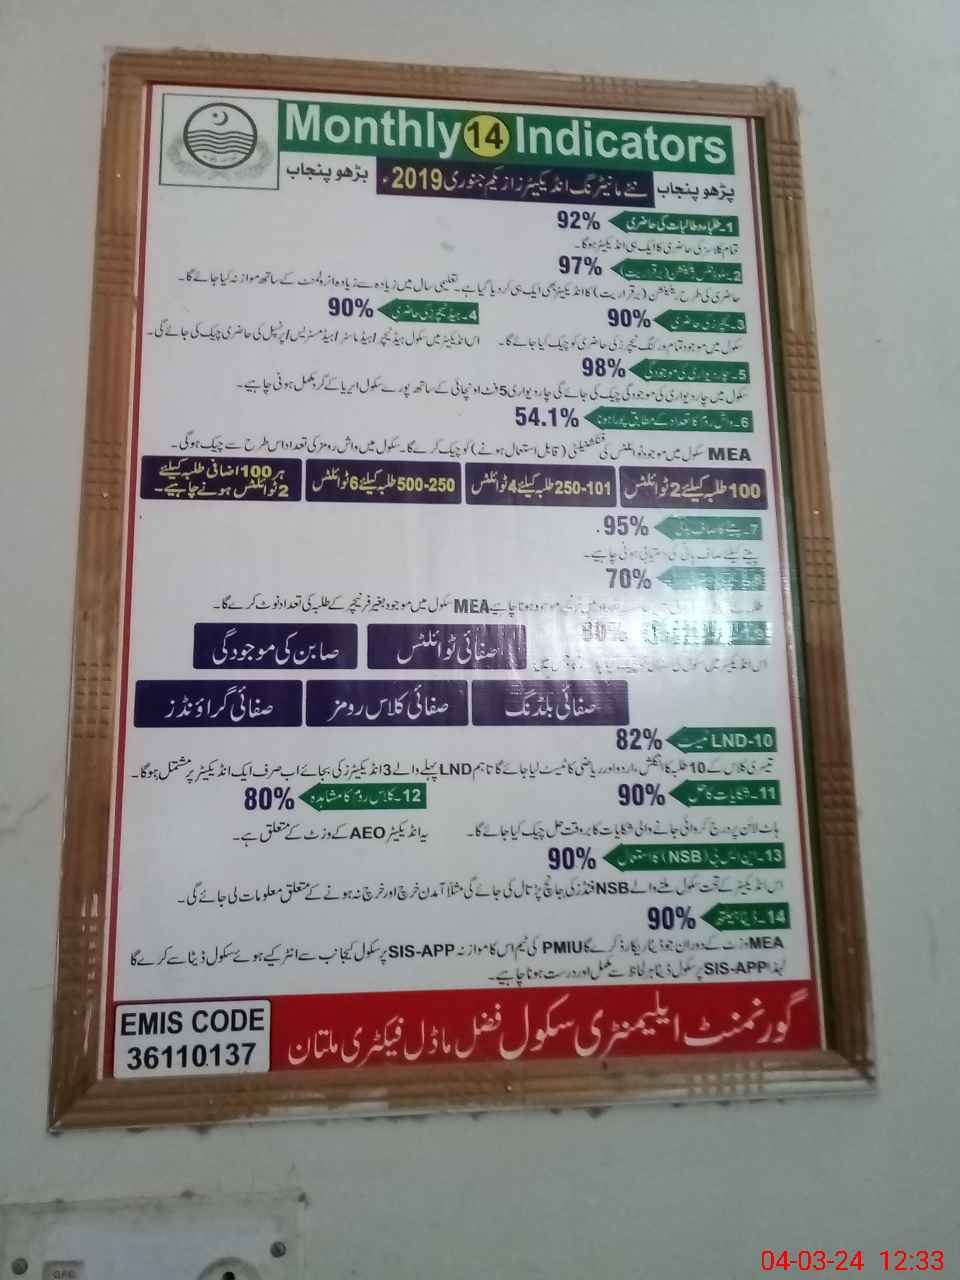 Monthly 14 Indicators
پڑھو پنجاب نئے مانیٹرنگ انڈیکیٹرز از یکم جنوری 2019ء بڑھو پنجاب
1۔ طلباء و طالبات کی حاضری 92%
تمام کلاسز کی حاضری کا ایک ہی انڈیکیٹر ہوگا۔
2۔ سٹوڈنٹس ریٹینشن (برقراریت) 97%
حاضری کی طرح ریٹینشن (برقراریت) کا انڈیکیٹر بھی ایک ہی کر دیا گیا ہے۔ تعلیمی سال میں زیادہ سے زیادہ انرولمنٹ کے ساتھ موازنہ کیا جائے گا۔
3۔ ٹیچرز کی حاضری 90% 4۔ ہیڈ ٹیچرز کی حاضری 90%
سکول میں موجود تمام ورکنگ ٹیچرز کی حاضری کو چیک کیا جائے گا۔ اس انڈیکیٹر میں سکول ہیڈ ٹیچر/ہیڈ ماسٹر/ہیڈ مسٹریس/پرنسپل کی حاضری چیک کی جائے گی۔
5۔ چار دیواری کی موجودگی 98%
سکول میں چار دیواری کی موجودگی چیک کی جائے گی چار دیواری 5 فٹ اونچائی کے ساتھ پورے سکول ایریا کے گرد مکمل ہونی چاہیے۔
6۔ واش روم کا تعداد کے مطابق پورا ہونا 54.1%
MEA سکول میں موجود ٹوائلٹس کی فنکشنیلٹی (قابل استعمال ہونے) کو چیک کرے گا۔ سکول میں واش رومز کی تعداد اس طرح سے چیک ہوگی۔
100 طلبہ کیلئے 2 ٹوائلٹس 101-250 طلبہ کیلئے 4 ٹوائلٹس 250-500 طلبہ کیلئے 6 ٹوائلٹس ہر 100 اضافی طلبہ کیلئے 2 ٹوائلٹس ہونے چاہیے۔
7۔ پینے کا صاف پانی 95%
پینے کیلئے صاف پانی کی دستیابی ہونی چاہیے۔
70%
موجود ہونا چاہیے MEA سکول میں موجود بغیر فرنیچر کے طلبہ کی تعداد نوٹ کرے گا۔
80%
اس انڈیکیٹر میں سکول کی
صفائی ٹوائلٹس صابن کی موجودگی
صفائی بلڈنگ صفائی کلاس رومز صفائی گراؤنڈز
10-LND ٹیسٹ 82%
تیسری کلاس کے 10 طلبہ کا انگلش، اردو اور ریاضی کا ٹیسٹ لیا جائے گا تاہم LND پہلے والے 3 انڈیکیٹرز کی بجائے اب صرف ایک انڈیکیٹر پر مشتمل ہوگا۔
11۔ شکایات کا حل 90% 12۔ کلاس روم کا مشاہدہ 80%
ہاٹ لائن پر درج کروائی جانے والی شکایات کا بروقت حل چیک کیا جائے گا۔ یہ انڈیکیٹر AEO کے وزٹ کے متعلق ہے۔
13۔ این ایس بی (NSB) کا استعمال 90%
اس انڈیکیٹر کے تحت سکول ملنے والے NSB فنڈز کی جانچ پڑتال کی جائے گی مثلاً آمدن خرچ اور خرچ نہ ہونے کے متعلق معلومات لی جائے گی۔
14۔ ڈیٹا ہیلتھ 90%
MEA وزٹ کے دوران جو ڈیٹا ریکارڈ کرے گا PMIU کی ٹیم اس کا موازنہ SIS-APP پر سکول کیجانب سے انٹر کیے ہوئے سکول ڈیٹا سے کرے گا
لہذا SIS-APP پر سکول ڈیٹا ہر لحاظ سے مکمل اور درست ہونا چاہیے۔
گورنمنٹ ایلیمنٹری سکول فضل ماڈل فیکٹری ملتان
EMIS CODE
36110137
04-03-24 12:33